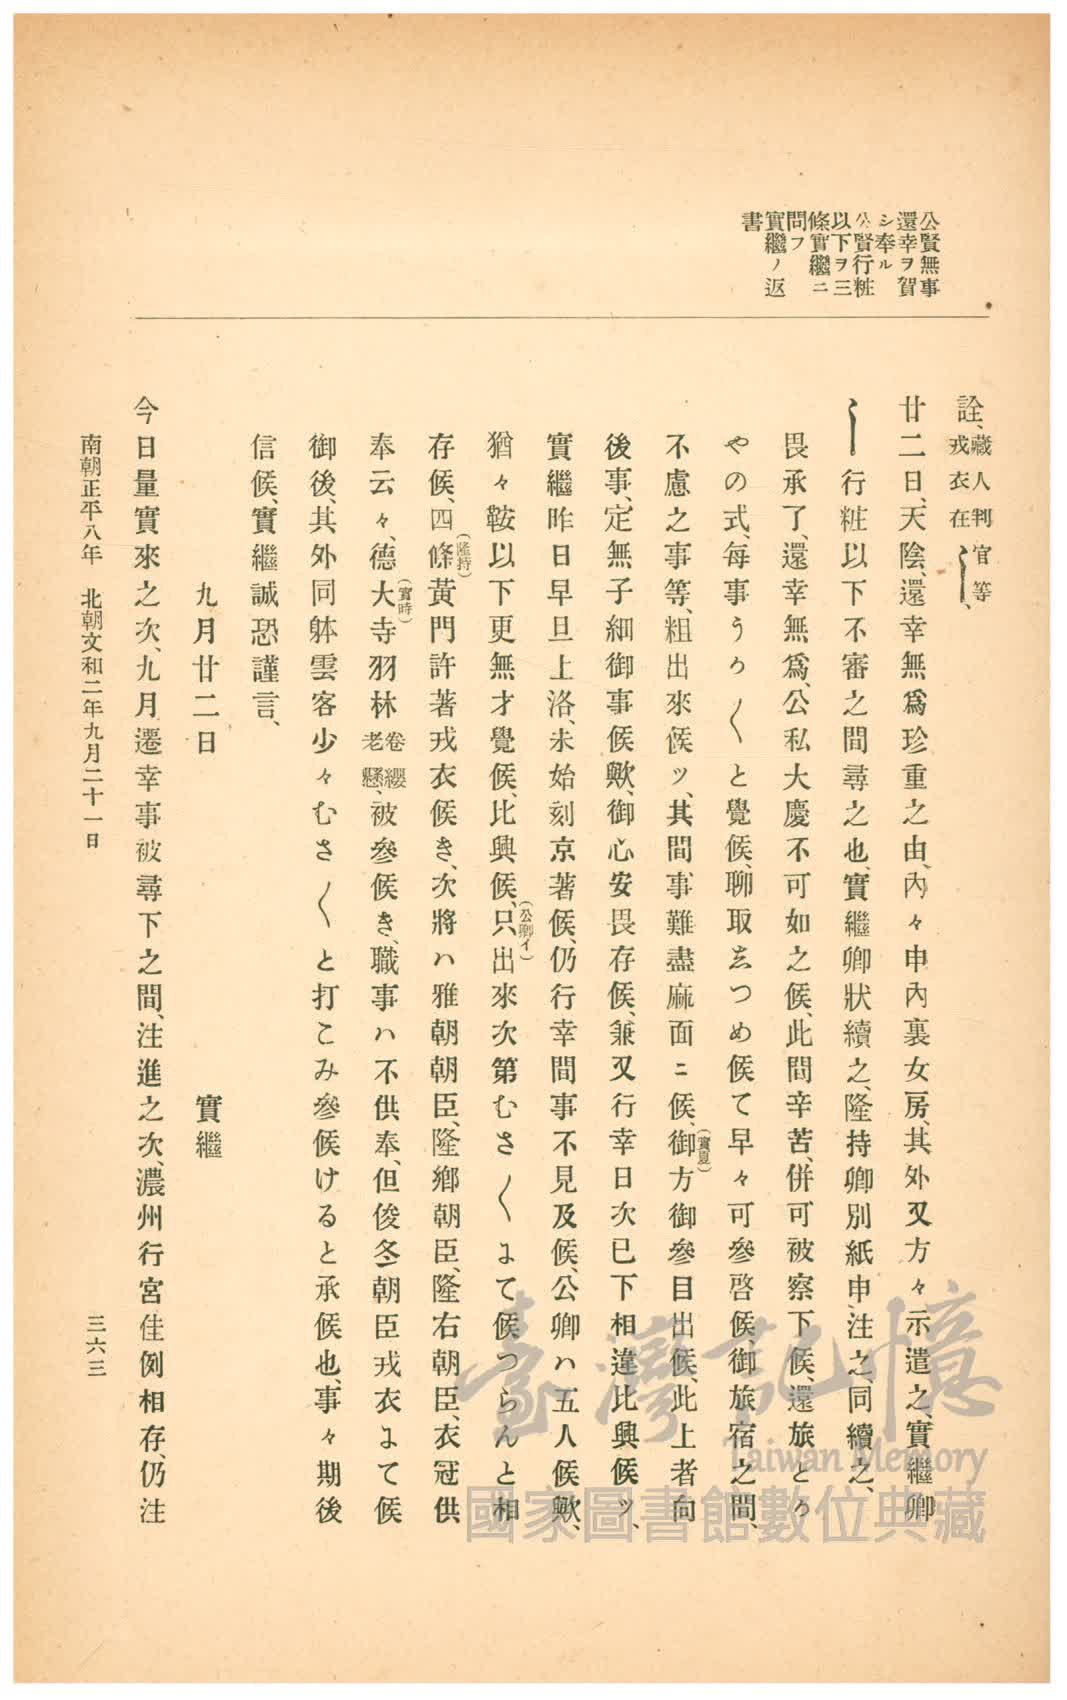 公賢無事
還幸ヲ賀
シ奉ル
公賢行粧
以下ヲ三
條實繼ニ
問フ
實繼ノ返
書
詮、藏人判官等、戎衣在〳〵、
廿二日、天陰、還幸無爲珍重之由、內々申內裏女房、其外又方々示遣之、實繼卿
〳〵行粧以下不審之間尋之也、實繼卿狀續之、隆持卿別紙申、注之、同續之、
畏承了、還幸無爲、公私大慶不可如之候、此間辛苦、併可被察下候、還旅とり
やの式、每事うり〳〵と覺候、聊取あつめ候て早々可參啓候、御旅宿之間、
不慮之事等、粗出來候ツ、其間事難盡麻面ニ候、御方(實夏)御參目出候、此上者向
後事、定無子細御事候歟、御心安畏存候、兼又行幸日次已下相違比興候ツ、
實繼昨日早旦上洛、未始刻京著候、仍行幸間事不見及候、公卿ハ五人候歟、
猶々鞍以下更無才覺候、比興候、只(公卿イ)出來次第むさ〳〵よて候つらんと相
存候、四條(隆持)黃門許著戎衣候き、次將ハ雅朝朝臣、隆鄕朝臣、隆右朝臣、衣冠供
奉云々、德大寺(實時)羽林卷纓老懸、被參候き、職事ハ不供奉、但俊冬朝臣戎衣よて候
御後、其外同躰雲客少々むさ〳〵と打こみ參候けると承候也、事々期後
信候、實繼誠恐謹言、
九月廿二日 實繼
今日量實來之次、九月遷幸事被尋下之間、注進之次、濃州行宮佳例相存、仍注
南朝正平八年 北朝文和二年九月二十一日
三六三
臺灣記憶
Taiwan Memory
國家圖書館數位典藏